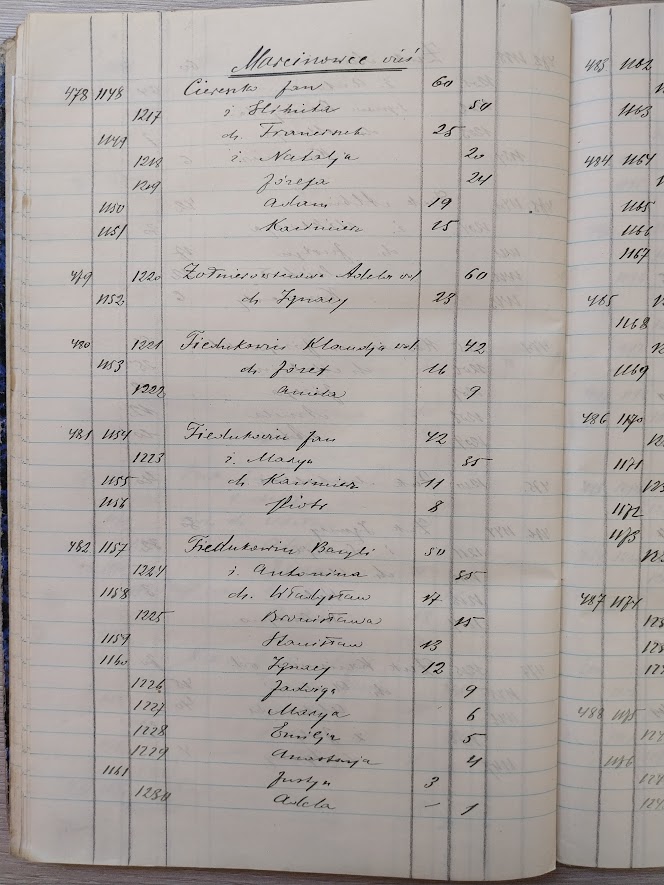 Marcinowce wieś
478 1148 Ciereszko Jan 60
1217 ż. Elżbieta 50
1149 dz. Franciszek 25
1218 ż. Natalja 20
1219 Józefa 24
1150 Adam 19
1151 Kazimierz 15
479 1220 Adela wd. 60
1152 dz. Ignacy 23
480 1221 Fiedukowicz Klaudja wd. 42
1153 dz. Józef 16
1222 Aniela 9
481 1154 Fiedukowicz Jan 42
1223 ż. Marya 35
1155 dz. Kazimierz 11
1156 Piotr 8
482 1157 Fiedukowicz Bazyli 50
1224 ż. Antonina 35
1158 dz. Władysław 17
1225 Bronisława 15
1159 Stanisław 13
1160 Ignacy 12
1226 Jadwiga 9
1227 Marya 6
1228 Emilja 5
1229 Anastazja 4
1161 Justyn 3
1230 Adela – 1
483 1162
1163
484 1164
1165
1166
1167
485
1168
1169
486 1170
1171
1172
1173
487 1174
488 1175
1176